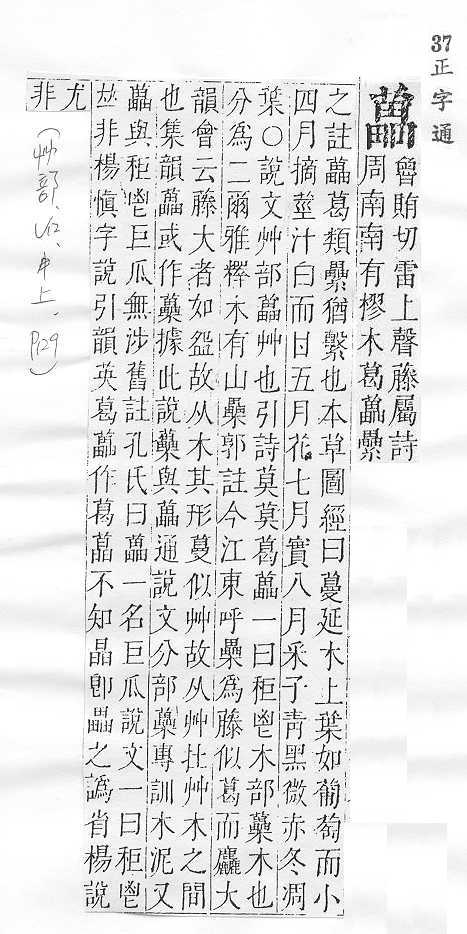 37正字通
藟
魯賄切雷上聲藤屬詩
周南南有樛木葛藟纍
之註藟葛類纍猶繫也本草圖經曰蔓延木上葉如葡萄而小
四月摘莖汁白而甘五月花七月實八月采子青黑微赤冬凋
葉〇說文艸部藟艸也引詩莫莫葛藟一曰秬鬯木部藥木也
分為二爾雅欅木有山櫐郭註今江東呼櫐為藤似葛而麤大
韻會云藤大者如盌故从木其形蔓似艸故从艸在艸木之間
也集韻藟或作蘽據此說蘽與藟通說文分部蘽專訓木泥又
藟與秬鬯巨瓜無涉舊註孔氏曰藟一名巨瓜說文一曰秬鬯
𠀤非楊慎字說引韻英葛藟作葛藠不知晶卽畾之譌肖楊說
尤
非
(艸部、申上、P129)